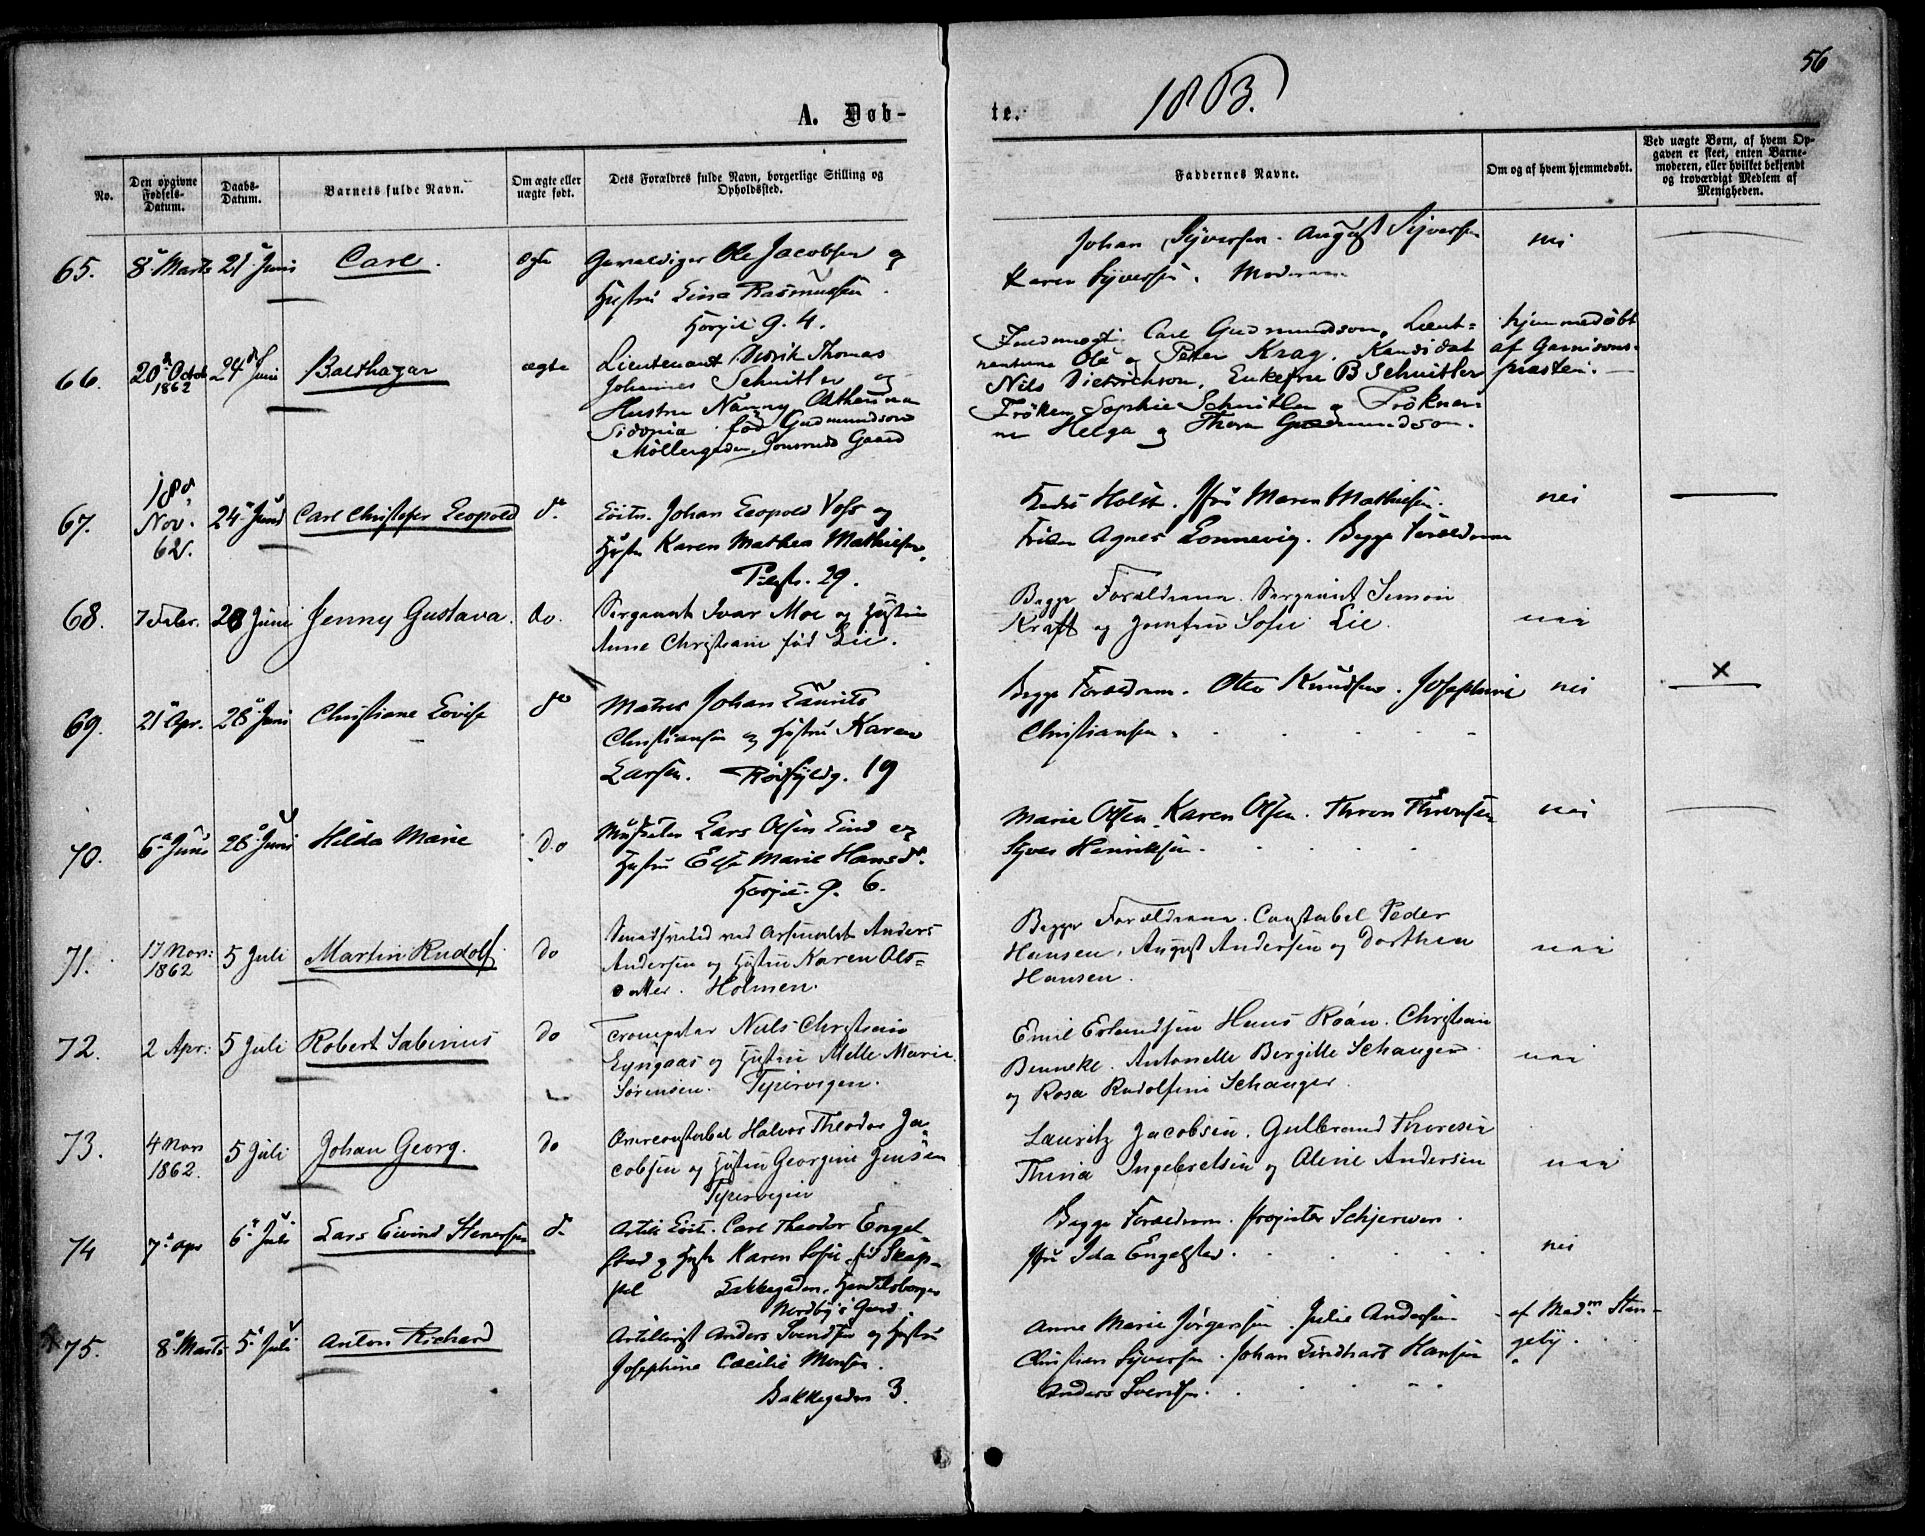 56
1863.
A. Døb-
te.
No.
Den opgivne Fødsels-Datum.
Daabs-Datum.
Barnets fulde Navn.
Om ægte eller uægte født.
Dets Forældres fulde Navn, borgerlige Stilling og Opholdssted.
Faddernes Navne.
Om og af hvem hjemmedøbt.
Ved uægte Børn, af hvem Opgaven er skeet, enten Barnemoderen, eller hvilket bekjendt og troværdigt Medlem af Menigheden.
65. 8de Marts 21de Juni Carl. ægte Gevaldiger Ole Jacobsen og
Hustru Lina Rasmussen.
g. 4.
Johan Syversen. August Syversen nei
Karen Syversen. Moderen
66. 20de Octob 1862 24de Juni Balthazar ægte Lieutenant Didrik Thomas
Johannes Schnitler og
Hustru Nanny Athenma
Sidonia fød Gudmundson
Møllergaden, Gaard
Fuldmægt. Carl Gudmundson, Lieut- hjemmedøbt
nanterne Ole og Peter Krag. Kandidat af Garnisons-
Nils Dietrichson, Enkefru B Schnitler præsten.
Frøken Sophie Schnitler og Frøkne-
ne Helga og Thora Gudmundson.
67. 18de Nov. 62. 24de Juni Carl Christofer Leopold do. Johan Leopold Voss og
Hustru Karen Mathea Mathiesen.
Pilestr. 29.
Holst. Jfr Maren Mathiesen. nei
Agnes Lonnevig. Begge Foreldrene
68. 7 Febr. 28 Juni Jenny Gustava. do. Sergeant Ivar Moe og Hustru
Anne Christiane fød Lie.
Begge Foreldrene. Sergeant Simon
Kraft og Jomfru Sofie Lie. nei
69. 21de Apr. 28de Juni Christiane Lovise do Matros Johan Laurits
Christiansen og Hustru Karen
Larsen. Rødfyldg. 19
Begge Foreldrene. Otto Knudsen. Josephine nei
Christiansen.
70. 6de Juni 28de Juni Hilda Marie do Lars Olsen Lind og
Hustru Else Marie Hansdr.
g. 6.
Marie Olsen. Karen Olsen. Thron Thronsen nei
Syver Henriksen.
71. 17 Nov: 1862 5 Juli Martin Rudolf do Smedsvend ved Arsenalet Anders
Andersen og Hustru Karen Ols-
datter. Holmen.
Begge Foreldrene. Constabel Peder
Hansen. August Andersen og Dorthea nei
Hansen.
72. 2 Apr: 5 Juli Robert Sabinius do Trompeter Niels Christian
Lyngaas og Hustru Melle Marie
Sørensen. Pipervigen.
Emil Erlandsen Hans Roån. Christian
Benneke. Antonette Bergitte Schanger nei
og Rosa Rudolfine Schanger.
73. 4 Nov 1862. 5 Juli Johan Georg. do Overconstabel Halvor Theodor Ja-
cobsen og Hustru Georgine Jensen
Pipervigen
Lauritz Jacobsen. Gulbrand Thoresen
Thrina Ingebretsen og Alene Andersen nei
74 7de Apr 6te Juli Lars Eivind Stenersen do. Artill. Carl Theodor Engel-
sted og Hustr Karen Sofie fød Skap-
pel Lakkegaden,
Nordby's Gaard.
Begge Foreldrene. Schjerven.
Jfr Ida Engelsted. nei
75. 8de Marts 5te Juli Anton Richard Artillerist Anders Svendsen og Hustru
Josephine Cæcilie Monsen.
Bakkegaden 3.
Anne Marie Jørgensen. Julie Andersen af Madm Sten-
Christian Syversen. Johan Lindhart Hansen geby.
Anders Svendsen.